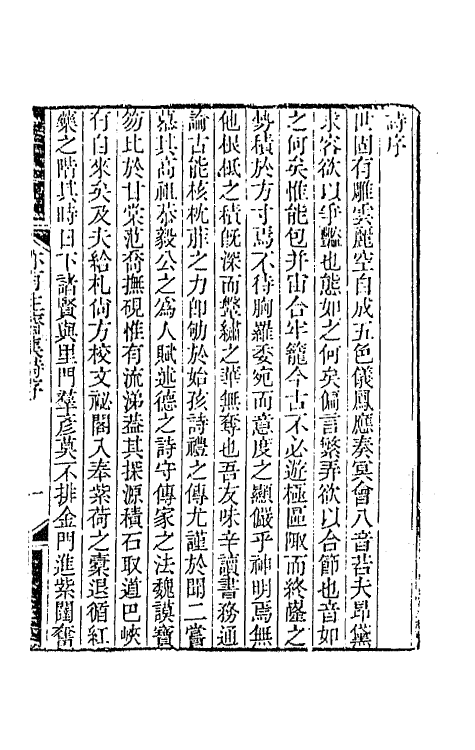 詩序
世固有雕雲麗空自成五色儀鳳應奏冥會八音若夫昻黛
求容欲以爭豔也態如之何矣偏言繁弄欲以合節也音如
之何矣惟能包幷宙合牢籠今古不必遊極區陬而終壑之
勢積於方寸焉不待胸羅委宛而意度之顯儼乎神明焉無
他根柢之積旣深而鞶繡之華無奪也吾友味辛讀書務通
論古能核枕葄之力卽劬於始孩詩禮之傳尤謹於聞二嘗
慕其高祖恭毅公之爲人賦述德之詩守傳家之法魏謨寶
笏比於甘棠范喬撫硯惟有流涕蓋其探源積石取道巴峽
有自來矣及夫給札尙方校文祕閣入奉紫荷之橐退循紅
藥之階其時日下諸賢與里門羣彥莫不排金門進紫闥奮
亦有生齋集詩序
一